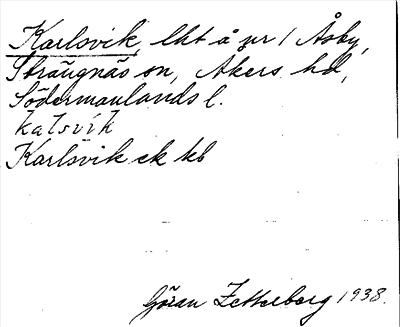 Karlsvik, lht å nr 1 Åsby,
Strängnäs sn, Åkers hd,
Södermanlands l.
kalsvik
Karlsvik ek kb
Göran Zetterberg 1938.